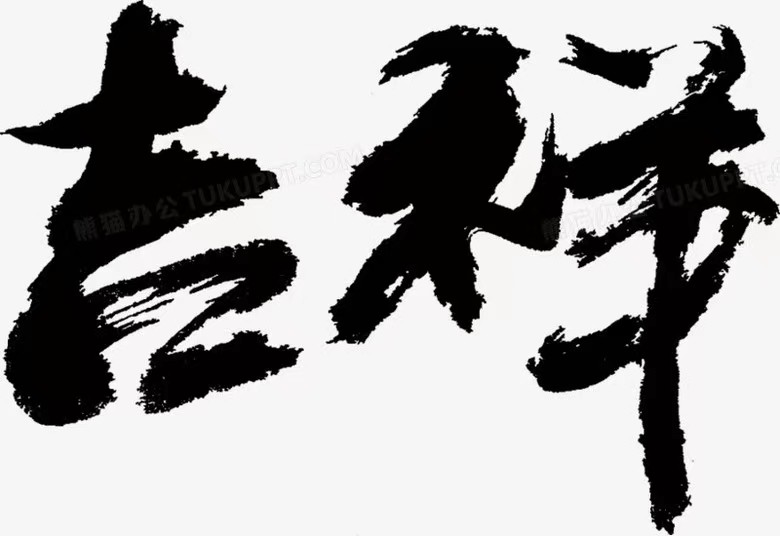 吉祥
熊猫办公 TUKUPPT.COM
熊猫办公 TUKUPPT.COM